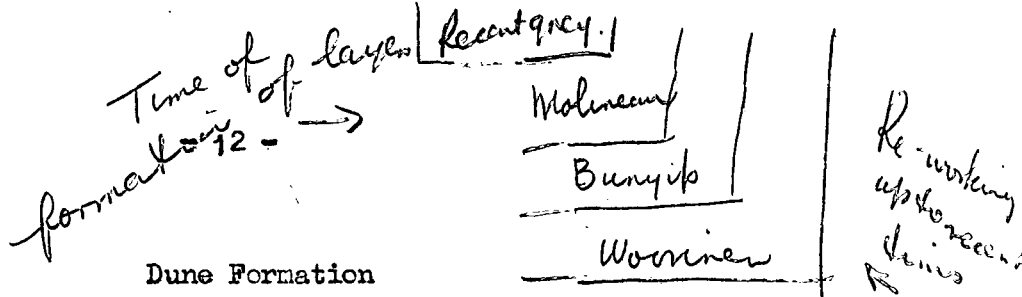 Time of
formation of layers →
Recent grey.
Molineaux
- 12 -
Bunyip
Woorinen
Re-working
up to recent
times
Dune Formation